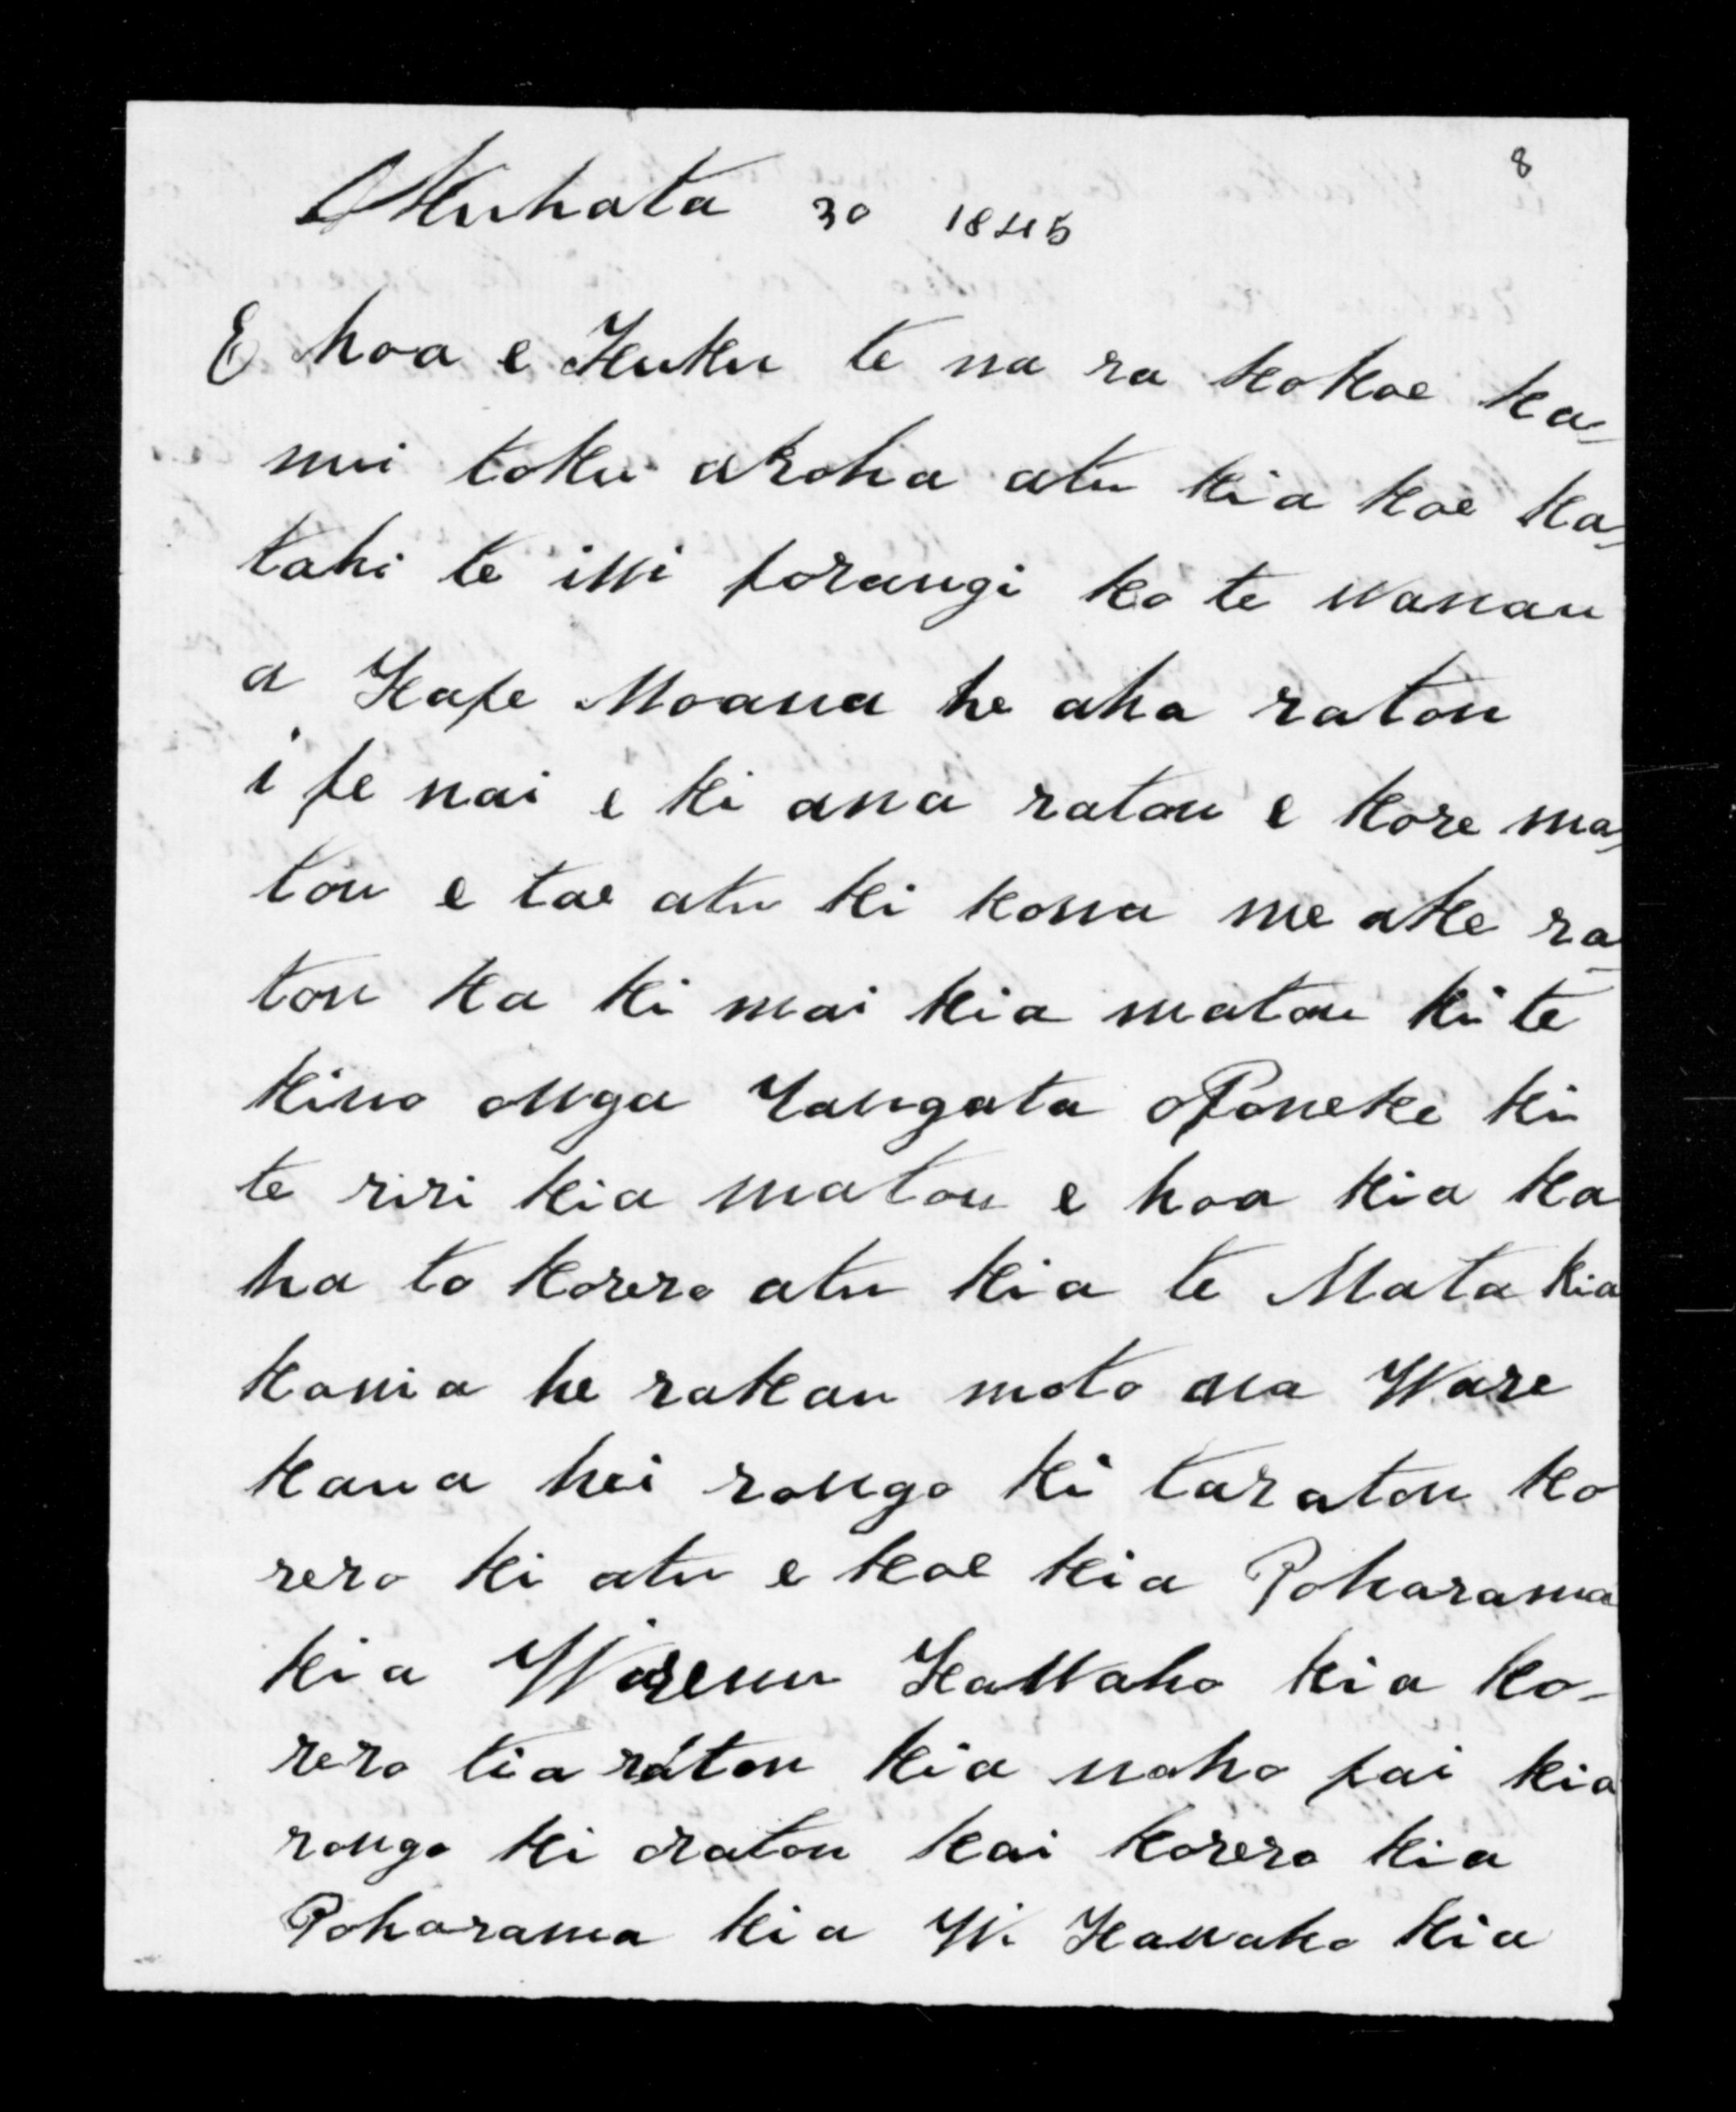 8
Akuhata 30 1845
E hoa e Kuku te na ra kokoe ka=
nui toku aroha atu kia koe ka=
tahi te iwi porangi ko te wanau
a Kape Moana he aha ratou
i pe nai e ki ana ratou e kore ma=
tou e tae atu ki kona me ake ra=
tou ka ki mai kia matou ki te
kino onga Tangata oPoneke ki
te riri kia matou e hoa kia ka
ha to korero atu kia te Mata kia
kania he rakau moto ona Ware
kaua hei rongo ki taratou ko
rero ki atu e koe kia Poharama
kia Wiremu Kawaho kia ko-
rero tia ratou kia noho pai kia
rongo ki oratou kai korero kia
Poharama kia W. Kawaho kia